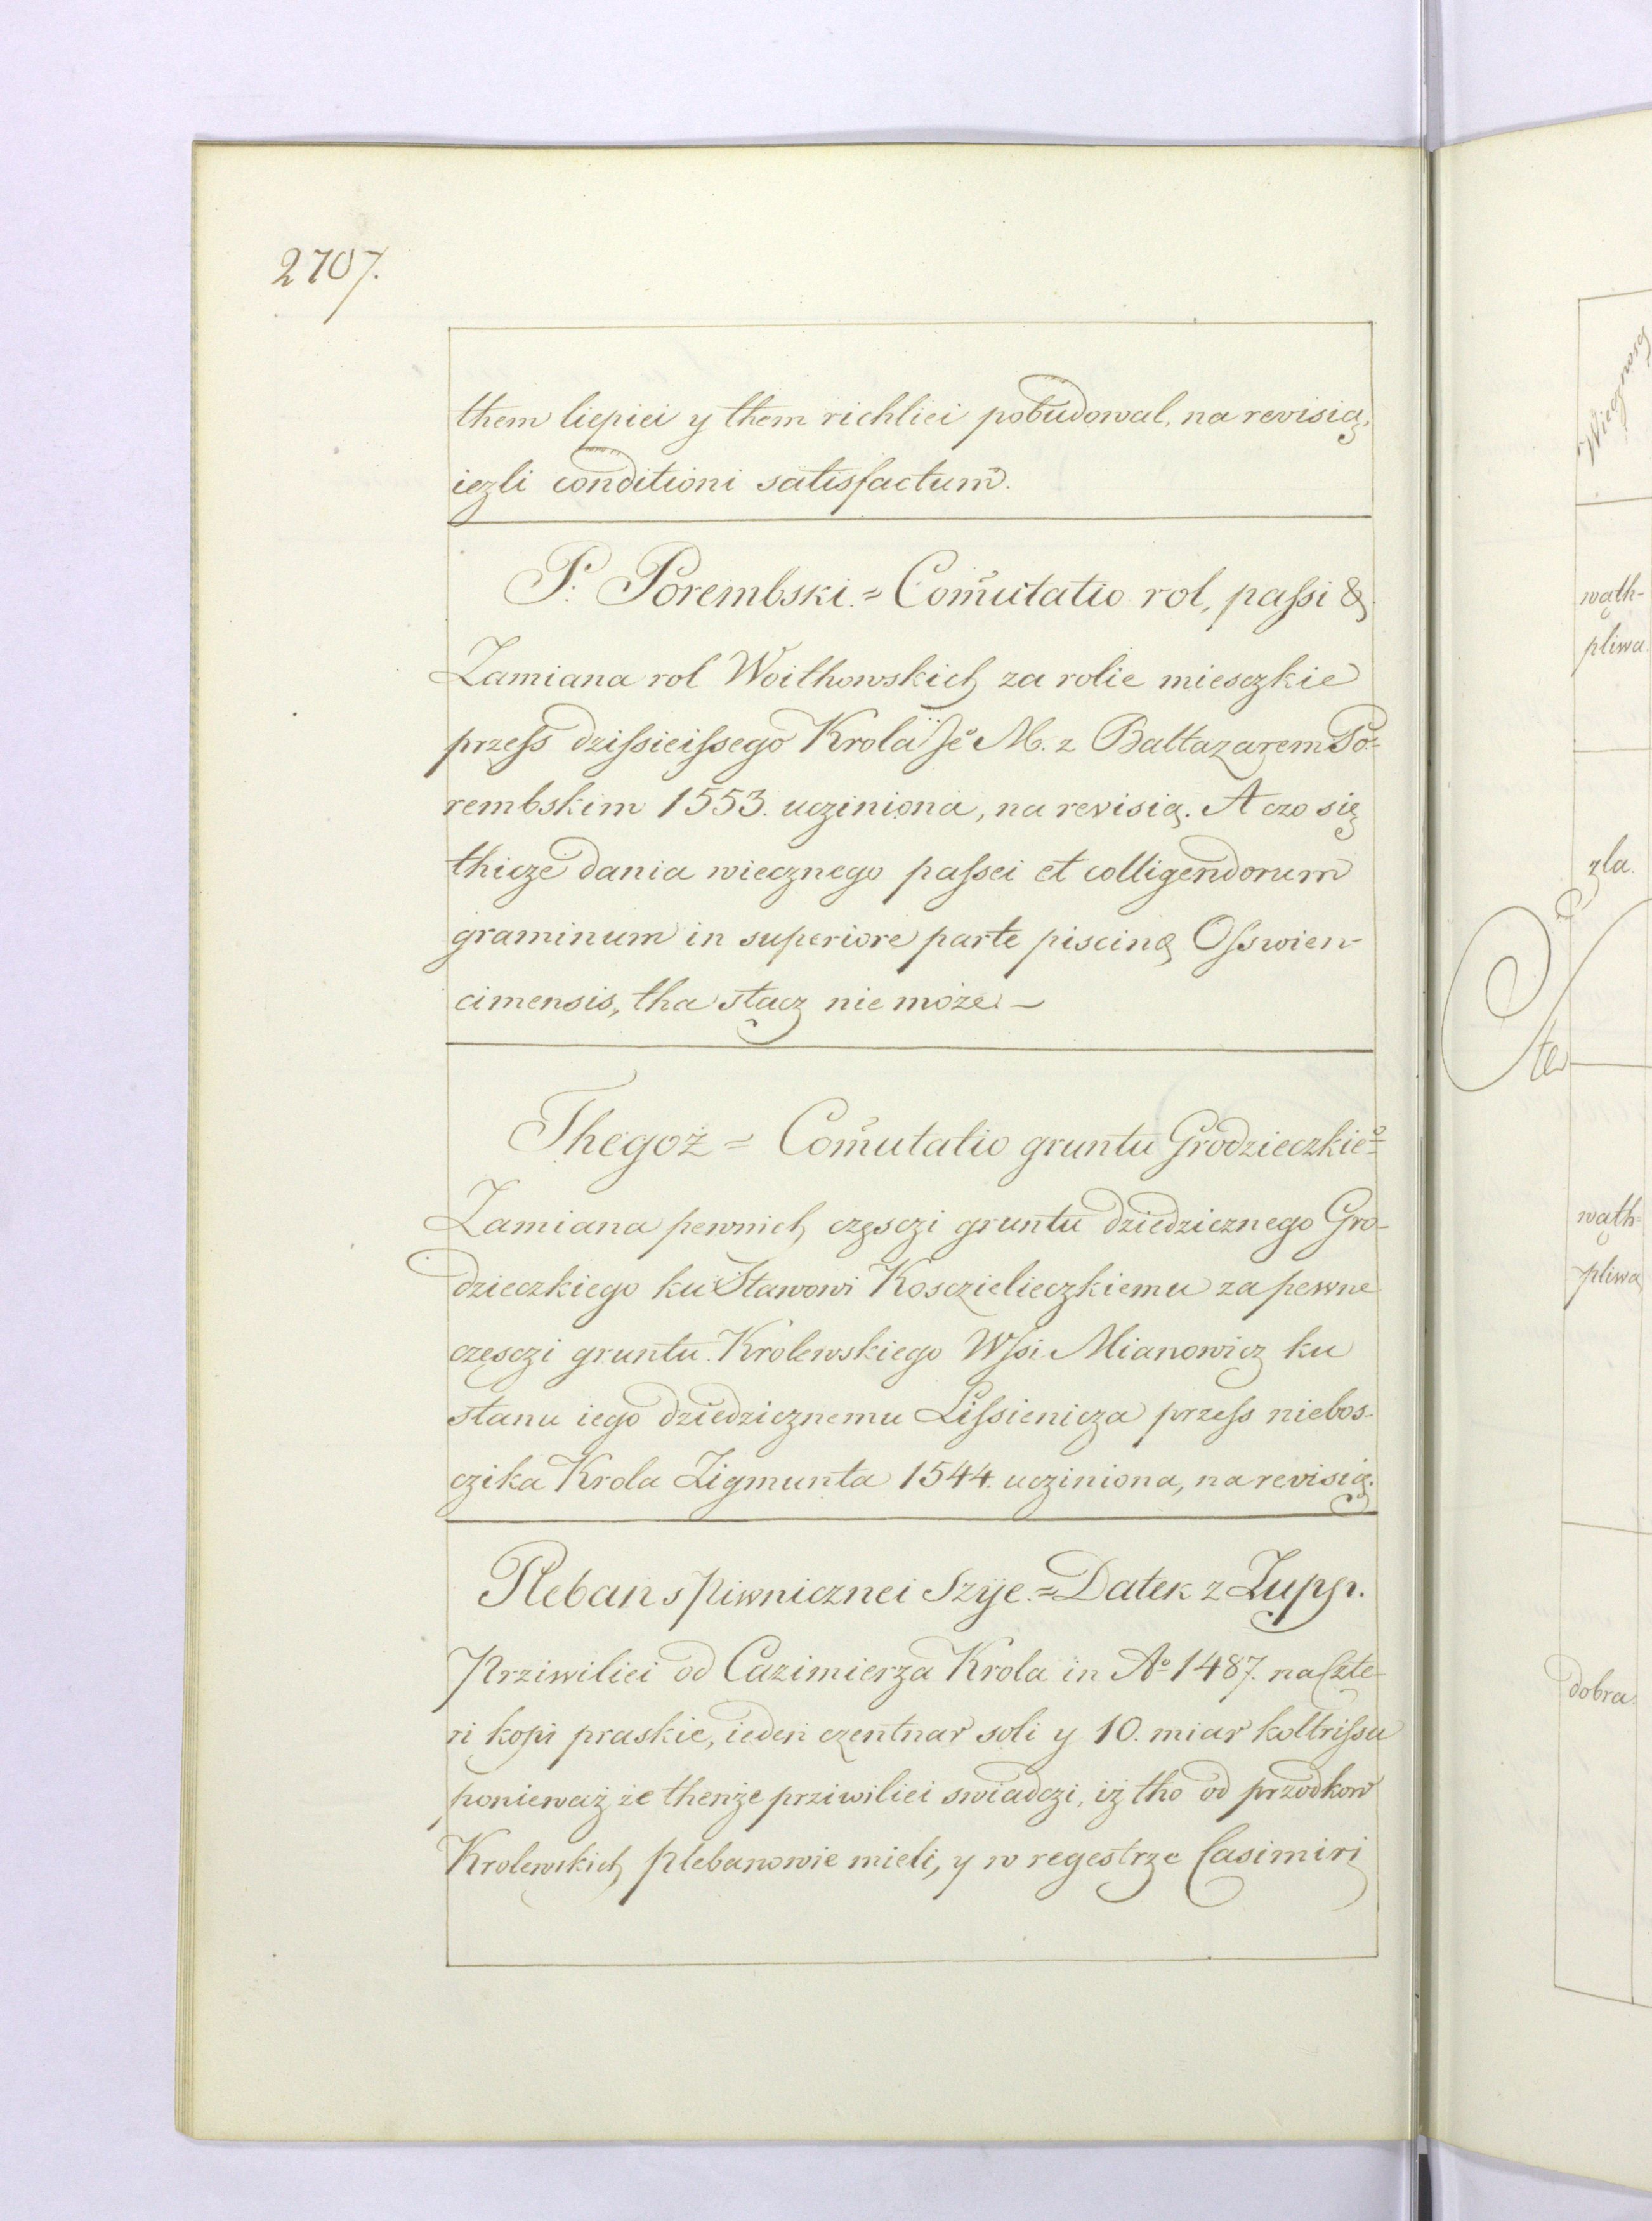 2707.
them liepiei y them richliei pobudowal, na revisią,
iezli conditioni satisfactum.
P. Porembski. = Com̃utatio rol, passi &
Zamiana rol Woithowskich za rolie miesczkie
przess dzissieissego Krola Je° M. z Baltazarem Po-
rembskim 1553. ucziniona, na revisią. A czo się
thicze dania wiecznego passei et colligendorum
graminum in superiore parte piscinę Osswien-
cimensis, tha stacz nie może. —
Thegoż = Com̃utatio gruntu Grodzieczkie°=
Zamiana pewnich częsczi gruntu dziedzicznego Gro-
dzieczkiego ku Stawowi Kosczielieczkiemu za pewne
częsczi gruntu Krolewskiego Wssi Mianowicz ku
stanu iego dziedzicznemu Lissienicza przess niebos-
czika Krola Zigmunta 1544. ucziniona, na revisią.
Pleban s Piwnicznei Szije. = Datek z Zupp.
Prziwiliei od Cazimierza Krola in A° 1487. na Czte-
ri kopi praskie, ieden czentnar soli y 10. miar koltrissu
ponieważ że thenże prziwiliei swiadczi, iż tho od przodkow
Krolewskich Plebanowie mieli, y w regestrze Casimiri
wąth-
pliwa.
zla.
wąth-
pliwa
dobra.